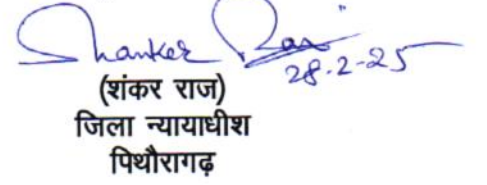 Shanker Raj
28.2-25
(शंकर राज)
जिला न्यायाधीश
पिथौरागढ़